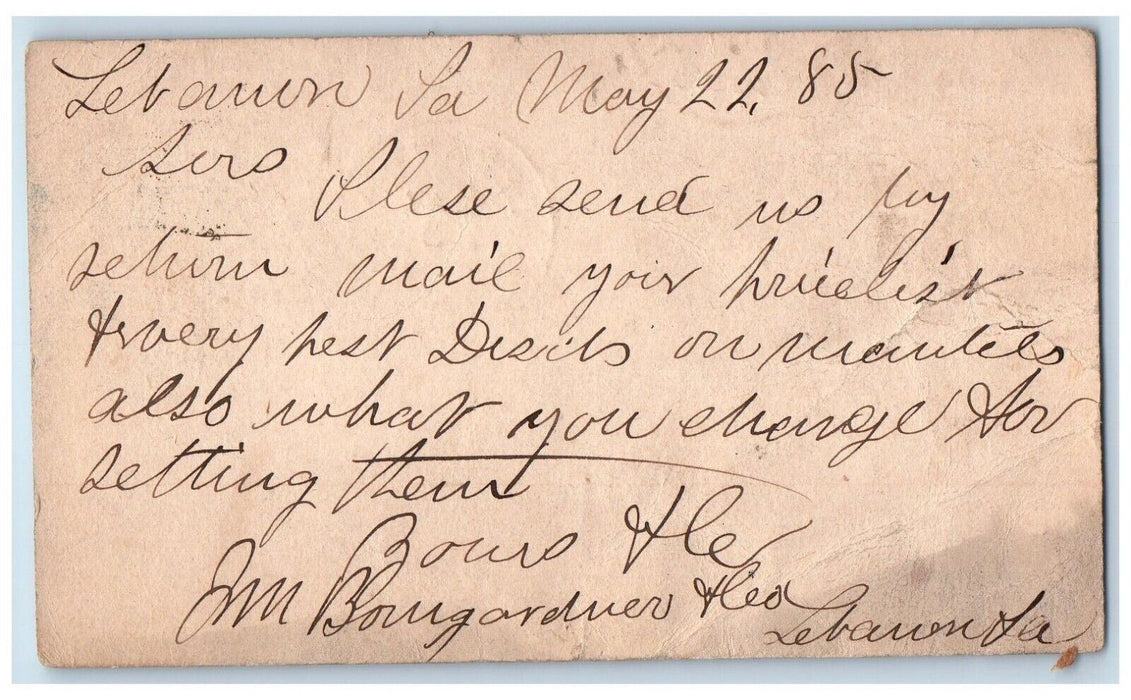 Lebanon Pa May 22, 85
Sirs
Plese send us by
return mail your pricelist
& very best Discts on mantels
also what you charge for
setting them
Yours &c
Bomgardner & Co
Lebanon Pa